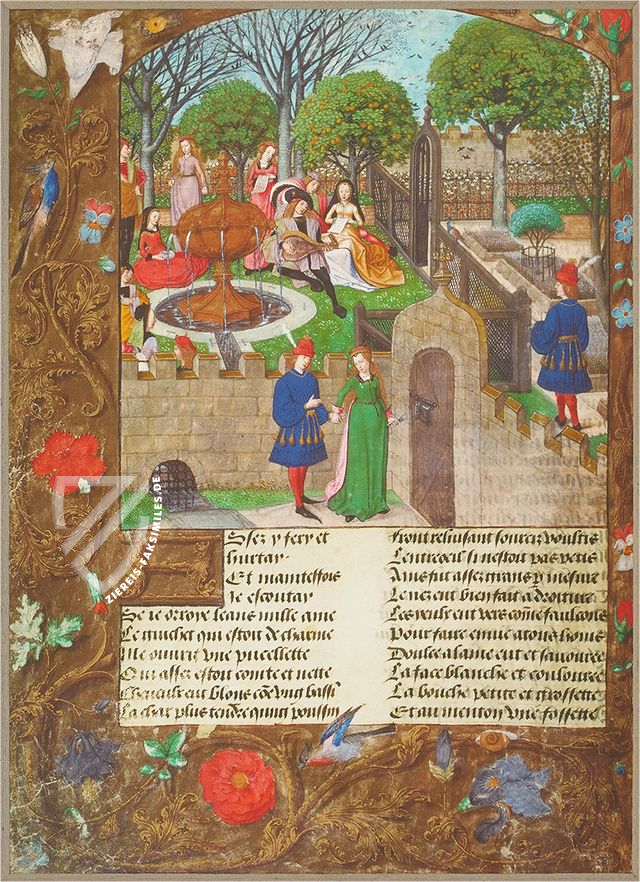 Ssez y fery et
hurtay.
Et maintesfois
ie escoutay
Se ie orroye leans nulle ame
Le guichet qui estoit de charme
Me ouurit vne pucellette
Qui assez estoit cointe et nette
Cheueulx eut blons cõe vng bassi
La char plus tendre quung poussin
Front reluisant sourciz voultis
Lentreoeil si nestoit pas petis
Ains fut assez grans p mesure
Le nez eut bien fait a droiture
Les yeulx eut vers cõme faulcons
Pour faire enuie a tous homs
Doulce alaine eut et sauouree
La face blanche et coulouree
La bouche petite et grossette
Et au menton vne fossette
ZIEREIS-FAKSIMILES.DE